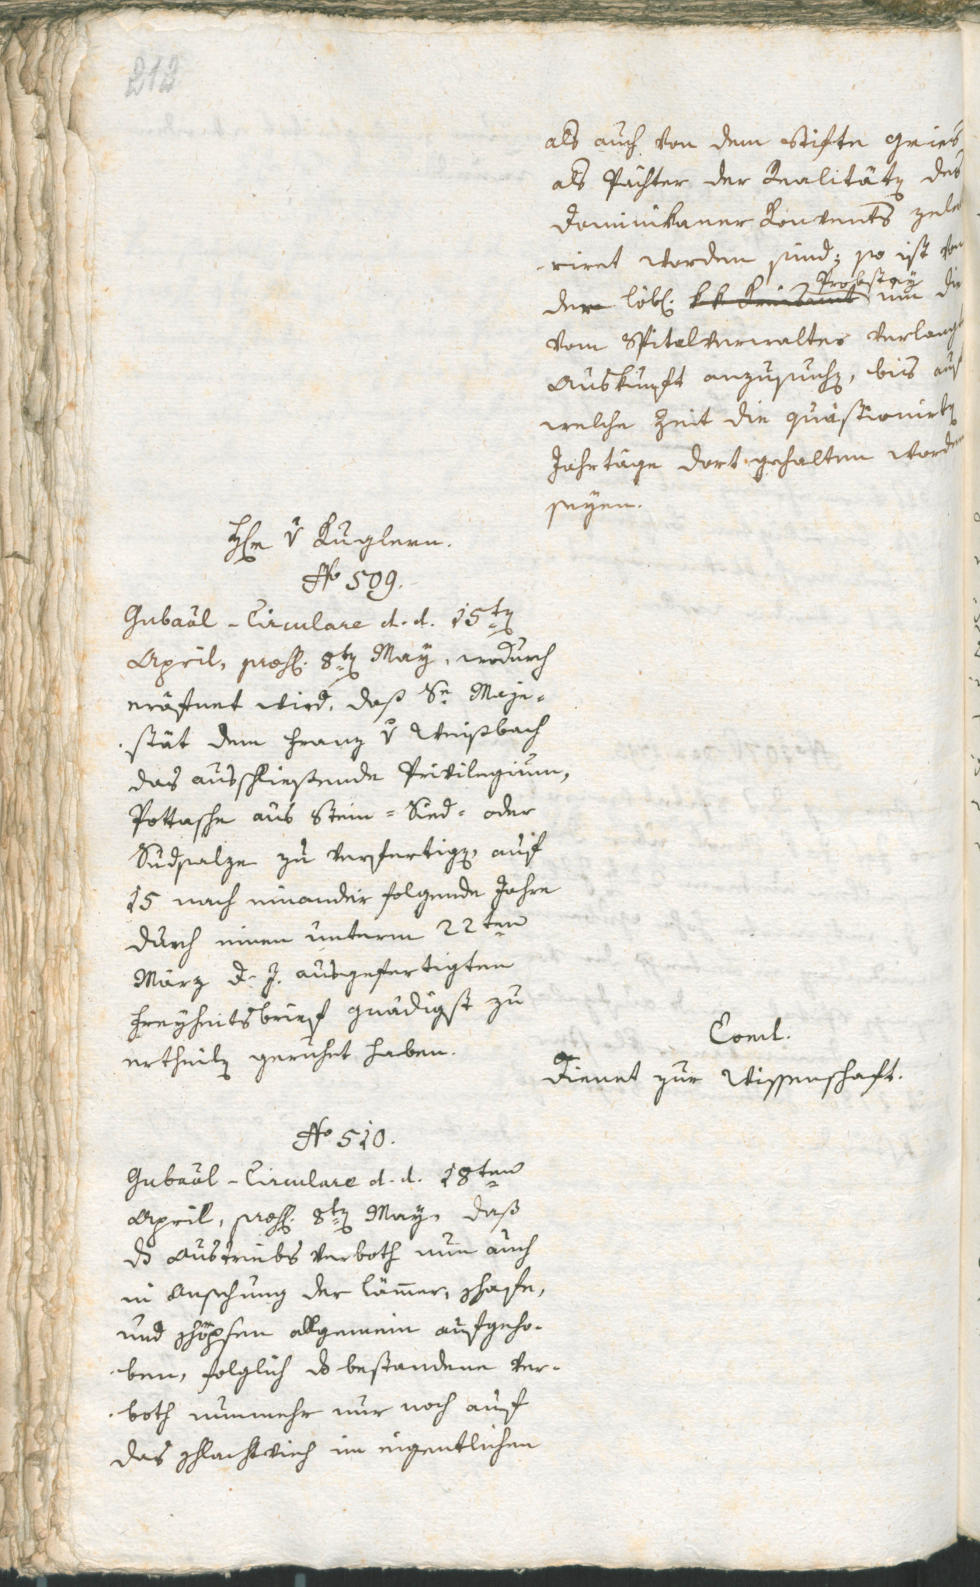 212
als auch von dem Stifte Gries
als Pächter der Realitäten des
Dominikaner Konvents zele-
rirt worden sind; so ist von
der löbl. k. k. Kreisamt Probstey um die
vom Spitalverwalter verlangte
Auskunft anzusuchen, bis auf
welche Zeit die quästionirten
Jahrtäge dort gehalten worden
seyen.
Hr. v Kuglern.
No 509.
Gubaäl-Circulare d. d. 15ten
April, præs. 8ten May, wodurch
eröfnet wird, daß Se Maje-
stät dem Franz v Weißbach
das ausschliessende Privilegium,
Pottasche aus Stein- Sied- oder
Sudsalze zu verfertigen, auf
15 nach einander folgende Jahre
durch einen unterm 22ten
März d. J. ausgefertigten
Freyheitsbrief gnädigst zu
ertheilen geruhet haben.
Concl.
Dienet zur Wissenschaft.
No 510.
Gubaäl-Circulare d. d. 18ten
April, præs. 8ten May, daß
ds Austriebs Verboth nun auch
in Ansehung der Lämmer, Schafe,
und Schöpsen allgemein aufgeho-
ben, folglich ds bestandene Ver-
both nunmehr nur noch auf
das Schlachtvieh im eigentlichen